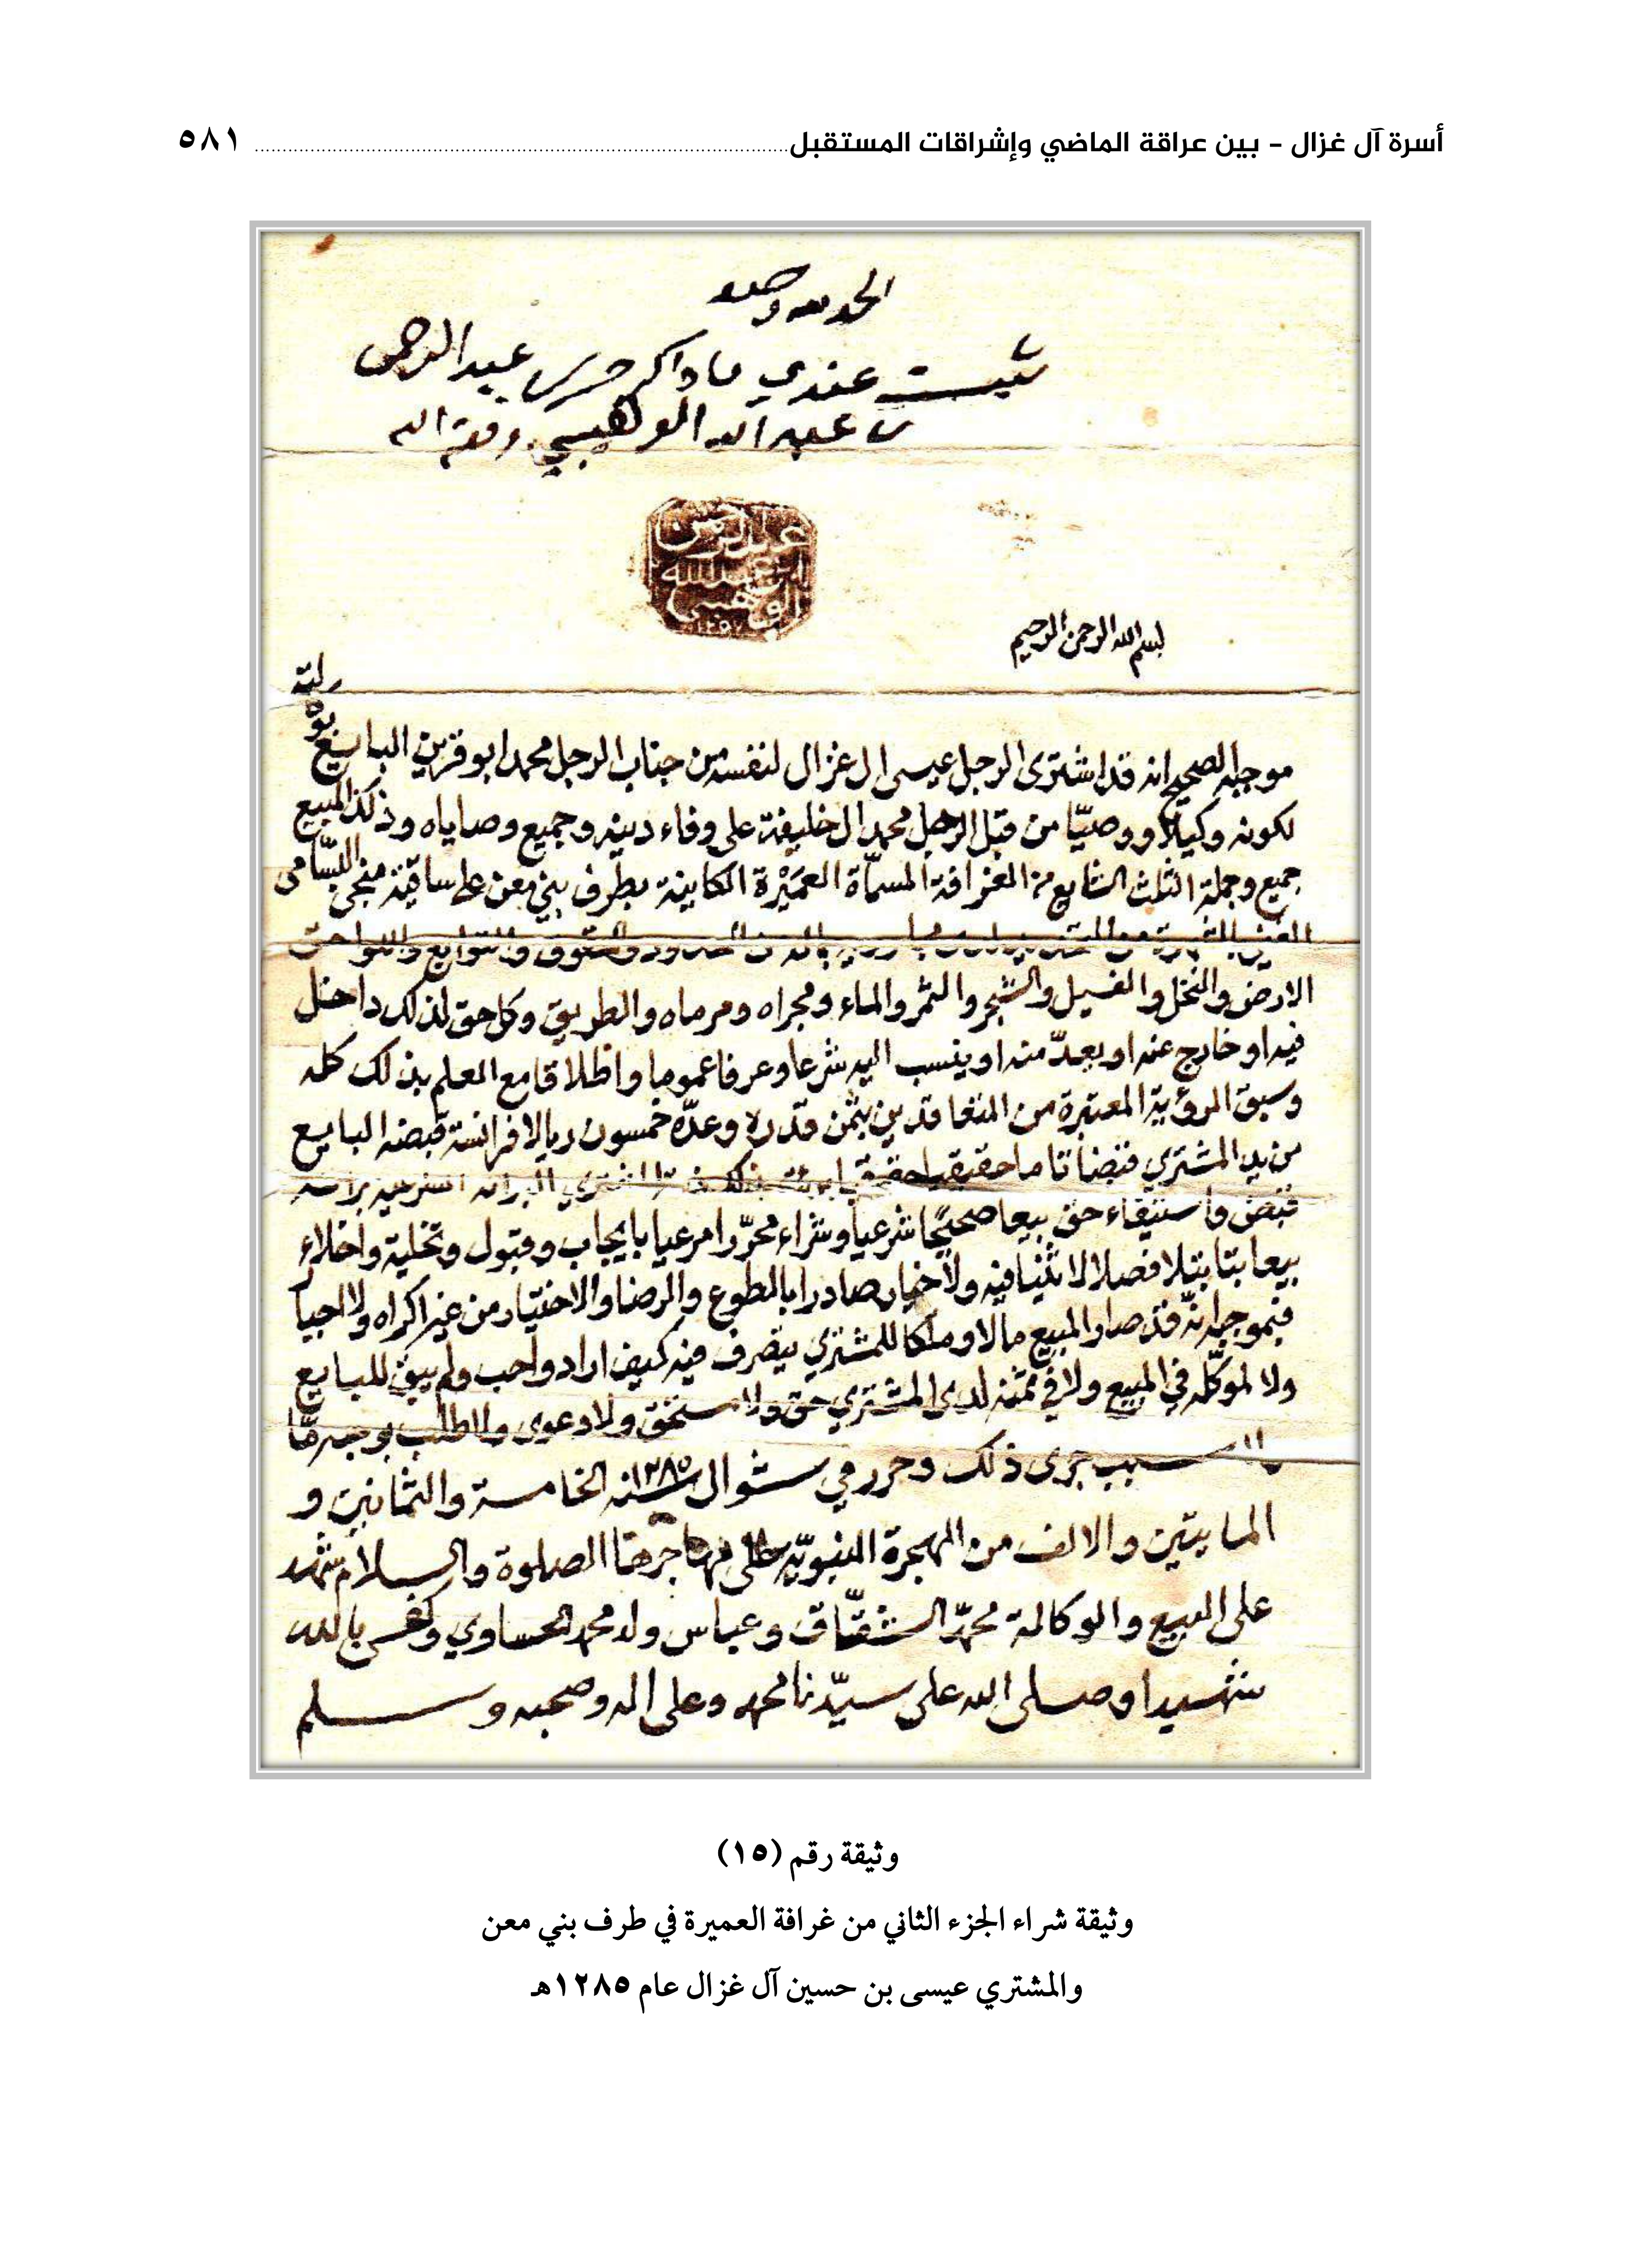 أسرة آل غزال - بين عراقة الماضي وإشراقات المستقبل ٥٨١
الحمد لله وحده
ثبت عندي ما ذكر حرره عبد الرحمن
بن عبد الله الوهيبي وفقه الله
عبد الرحمن
ابن عبد الله
الوهيبي
بسم الله الرحمن الرحيم
موجبه الصحيح انه قد اشترى الرجل عيسى ال غزال لنفسه من جناب الرجل محمد ابو قرين البايع
لكونه وكيلا ووصيّا من قبل الرجل محمد ال خليفة على وفاء دينه وجميع وصاياه وذلك المبيع
جميع وجملة الثلث الشايع من الغرافة المسمّاة العمَيْرة الكاينة بطرف بني معن على ساقية منجى
الحدود والحقوق والتوابع واللواحق
الارض والنخل والفسيل والشجر والثمر والماء ومجراه ومرماه والطريق وكل حق لذلك داخل
فيه او خارج عنه او يعدّ منه او ينسب اليه شرعا وعرفا عموما واطلاقا مع العلم بذلك كله
وسبق الرؤية المعتبرة من المتعاقدين بثمن قدره وعدّه خمسون ريالا فرانسة قبضه البايع
من يد المشتري قبضا تاما حقيقيا
قبض واستيفاء حق بيعا صحيحًا شرعيا وشراء محرّرا مرعيا بايجاب وقبول وتخلية واخلاء
بيعا بتا بتلا فصلا لا ثنيا فيه ولا خيار صادرا بالطوع والرضا والاختيار من غير اكراه ولا اجبار
فبموجبه انّه قد صار المبيع مالا وملكا للمشتري يتصرف فيه كيف اراد واحب ولم يبق للبايع
ولا لموكّله في المبيع ولا في ثمنه لدى المشتري حق ولا مستحق ولا دعوى ولا طلب بوجه مّا
ولا سبب جرى ذلك وحرر في شوال سنة ١٢٨٥ الخامسة والثمانين و
المايتين والالف من الهجرة النبويّة على مهاجرها الصلوة والسلام شهد
على البيع والوكالة محمّد الشقّاق وعباس ولد محمد الحساوي وكفى بالله
شهيدا وصلى الله على سيّدنا محمد وعلى اله وصحبه وسلم
وثيقة رقم (١٥)
وثيقة شراء الجزء الثاني من غرافة العميرة في طرف بني معن
والمشتري عيسى بن حسين آل غزال عام ١٢٨٥هـ